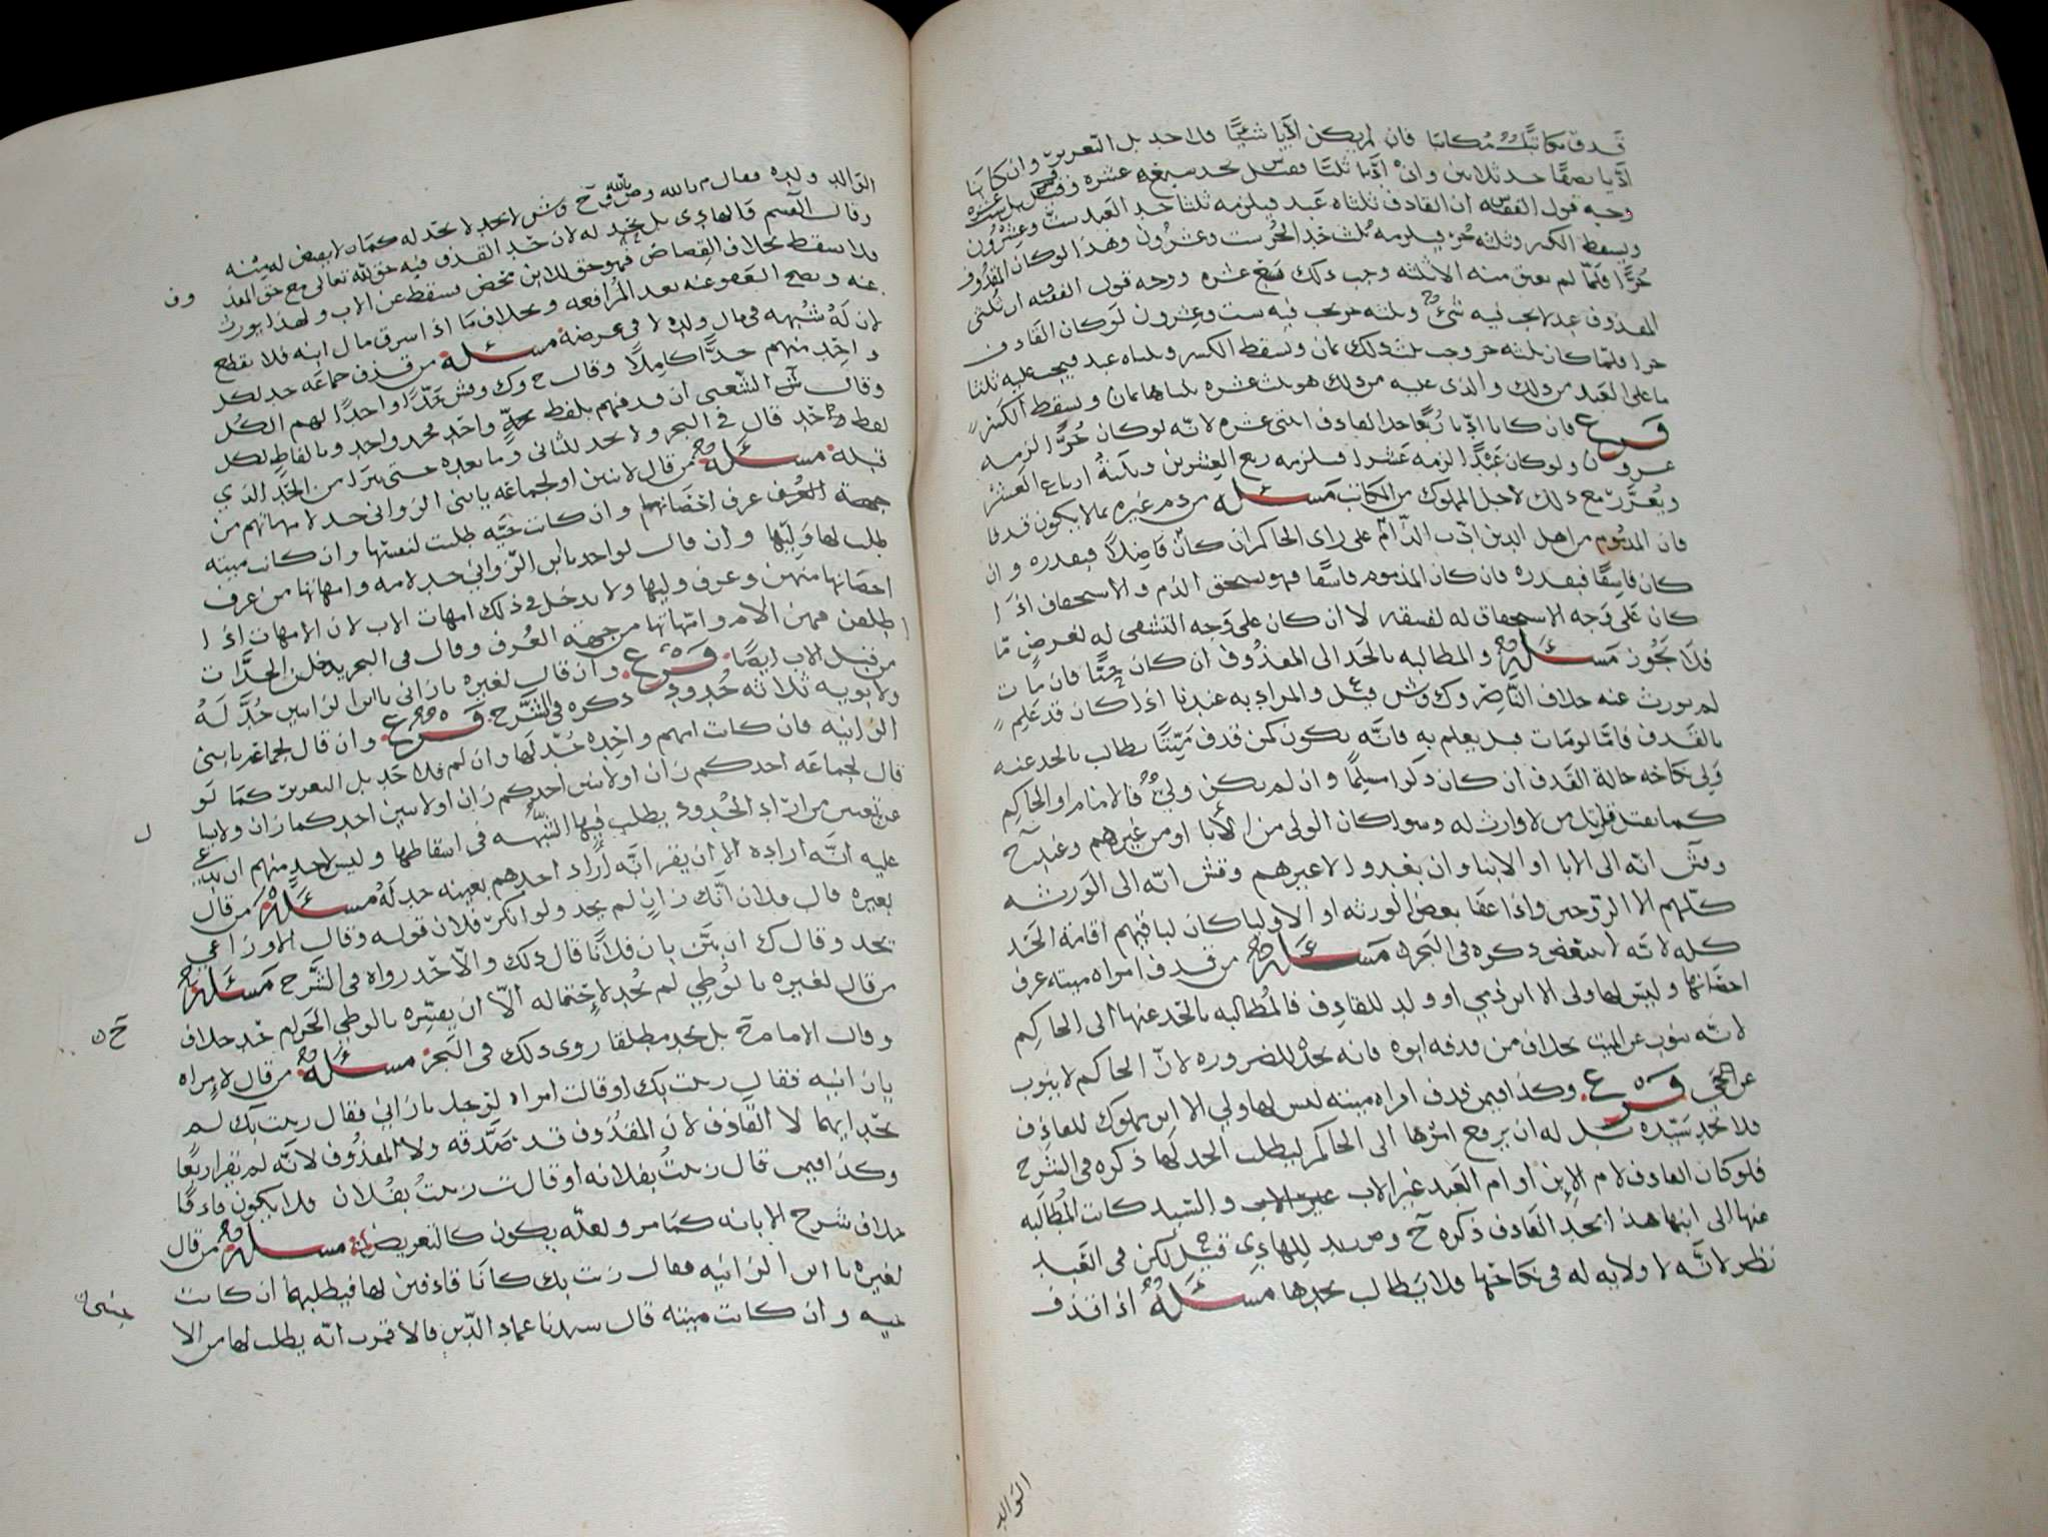 قذف مكاتب مكاتبا فان لم يكن اديا شيئا فلا حد بل التعزير وان كانا
اديا نصفا حد ثلاثين وان اديا ثلثا فقيل يحد سبع عشره وقيل بل ست عشره
وجه قول الفقيه ان القاذف ثلثاه عبد فيلزمه ثلثا حد العبد ست وعشرون
ويسقط الكسر وثلثه حر فيلزمه ثلث حد الحر ست وعشرون وهذا لو كان المقذوف
حرا فلما لم يعتق منه الا ثلثه وجب ذلك تسع عشره ووجه قول الفقيه ان ثلثى
المقذوف عبد لا يجب فيه شئ وثلثه حر يجب فيه ست وعشرون لو كان القاذف
حرا فلما كان ثلثه حر وجب ثلث ذلك ثمان ويسقط الكسر وثلثاه عبد فيجب عليه ثلثا
ما على العبد من ذلك والذى عليه من ذلك هو ثلث عشره ثلثاها ثمان ويسقط الكسر
فرع فان كانا اديا ربعا حد القاذف اثنى عشره لانه لو كان حرا لزمه
عشرون ولو كان عبدا لزمه عشرا فيلزمه ربع العشرين وثلثة ارباع العشر
ويعزر مع ذلك لاجل المملوك من المكاتب مسئله من ذم غيره بما لا يكون قذفا
فان المذموم من اهل الدين ادب الذام على راى الحاكم ان كان فاضلا فبقدره وان
كان فاسقا فبقدره فان كان المذموم فاسقا فهو يستحق الذم والاستخفاف اذا
كان على وجه الاستحقاق له لفسقه لا ان كان على وجه التشفى له لغرض ما
فلا يجوز مسئله والمطالبه بالحد الى المقذوف ان كان حيا فان مات
لم يورث عنه خلاف الناصر وك وش قيل والمراد به عندنا اذا كان قد علم
بالقذف فاما لو مات قبل يعلم به فانه يكون كمن قذف ميتا يطالب بالحد عنه
ولى نكاحه حالة القذف ان كان ذكرا مسلما وان لم يكن ولي فالامام او الحاكم
كما يقتل قاتل من لا وارث له وسوا كان الولى من الابا او من غيرهم وعند ح
وقش انه الى الابا او الابنا وان بعدو لا غيرهم وقش انه الى الورثه
كلهم الا الزوجين واذا عفا بعض الورثه او الاوليا كان لباقيهم اقامة الحد
كله لانه لا يتبعض ذكره فى البحر مسئله من قذف امراه ميته عرف
احصانها وليس لها ولى الا ابن ذمي او ولد للقاذف فالمطالبه بالحد عنها الى الحاكم
لانه ينوب عن الميت بخلاف من قذفه ابوه فانه يحد للضروره لان الحاكم لا ينوب
عن الحي فرع وكذا فيمن قذف امراه ميته ليس لها ولي الا ابن مملوك للقاذف
فلا يحد سيده بل له ان يرفع امرها الى الحاكم ليطلب الحد لها ذكره فى الشرح
فلو كان القاذف لام الابن او ام العبد غير الاب والسيد كانت المطالبه
عنها الى ابنها هذا ابحد القاذف ذكره ح وص بالله للهادى قيل لكن فى العبد
نظر لانه لا ولايه له فى نكاحها فلا يطالب بحدها مسئله اذا قذف
الوالد
الوالد ولده فقال م بالله وص بالله وح وش لا يحد له كما لا يقتص له منه
وقال القسم والهادى بل يحد له لان حد القذف فيه حق لله تعالى مع حق المقذوف
فلا يسقط بخلاف القصاص فهو حق للابن محض فسقط عن الاب ولهذا يورث
عنه ويصح العفو عنه بعد المرافعه وبخلاف ما اذا سرق مال ابنه فلا يقطع
لان له شبهه فى مال ولده لا فى عرضه مسئله من قذف جماعه حد لكل
واحد منهم حدا كاملا وقال ح وك وقش حدا واحدا لهم الكل
وقال ش الشعبي ان قذفهم بلفظ واحد فحد واحد وبالفاظ لكل
لفظ واحد قال فى البحر ولا يحد للثانى وما بعده حتى يبرا من الحد الذي
قبله مسئله من قال لاثنين او لجماعه يا بنى الزوانى حد لامهاتهم من
جهة العرف عرف احصانهما وان كانت حيه طلبت لنفسها وان كانت ميته
طلب لها وليها وان قال لواحد يا ابن الزواني حد لامه وامهاتها من عرف
احصانها منهن وعرف وليها ولا يدخل فى ذلك امهات الاب لان الامهات اذا
اطلقن فهن الام وامهاتها من جهة العرف وقال فى البحر يدخلن الجدات
من قبل الاب ايضا فرع وان قال لغيره يا زانى يا ابن الزانيين حد له
ولابويه ثلاثه حدود ذكره فى الشرح فرع وان قال لجماعه يا بنى
الزانيه فان كانت امهم واحده حد لها وان لم فلا حد بل التعزير كما لو
قال لجماعه احدكم زان او لاثنين احدكما زان ولا يبا
عن تعيين من اراد الحدود يطلب فيها الشبهه فى اسقاطها وليس لاحد منهم ان يدعي
عليه انه اراده الا ان يقر انه اراد احدهم بعينه حد له مسئله من قال
لغيره قال فلان انك زان لم يحد ولو انكر فلان قوله وقال الاوزاعي
يحد وقال ك ان بين بان فلانا قال ذلك والا حد رواه فى الشرح مسئله
من قال لغيره يا لوطي لم يحد لاحتماله الا ان يفسره بالوطي الحرام حد خلاف
وقال الامام ح بل يحد مطلقا روى ذلك فى البحر مسئله من قال لامراه
يا زانيه فقال زنيت بك او قالت امراه لرجل يا زاني فقال زنيت بك لم
يحد ايهما لا القاذف لان المقذوف قد صدقه ولا المقذوف لانه لم يقر اربعا
وكذا فيمن قال زنيت بفلانه او قالت زنيت بفلان فلا يكون قاذفا
خلاف شرح الابانه كما مر ولعله يكون كالتعريض مسئله من قال
لغيره يا ابن الزانيه فقال زنت بك كانا قاذفين لها فيطلبهما ان كانت
حيه وان كانت ميته قال سيدنا عماد الدين فالاقرب انه يطلب لها من الا